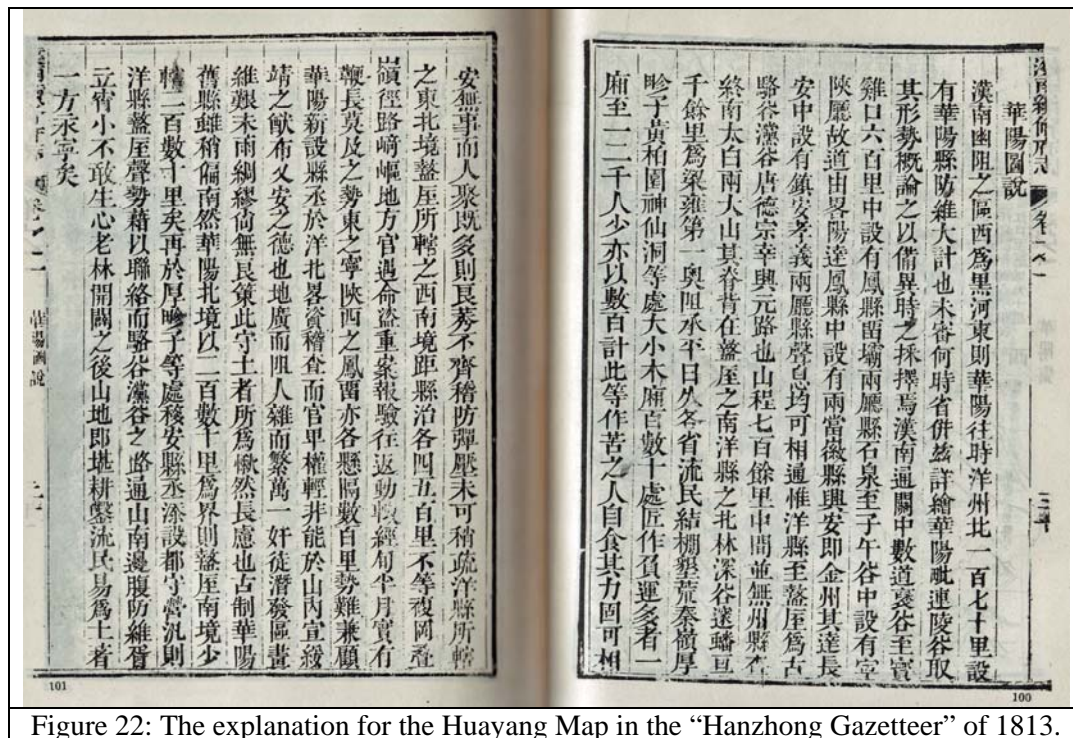 漢南續修府志 卷
華陽圖說
漢南幽阻之區西爲黑河東則華陽往時洋州北一百七十里設
有華陽縣防維大計也未審何時省併茲詳繪華陽毗連陵谷取
其形勢概論之以備異時之採擇焉漢南通關中數道襃谷至寶
雞口六百里中設有鳳縣留壩兩廳縣石泉至子午谷中設有寧
陝廳故道由畧陽達鳳縣中設有兩當徽縣興安即金州其達長
安中設有鎮安孝義兩廳縣聲息均可相通惟洋縣至盩厔爲古
駱谷灙谷唐德宗幸興元路也山程七百餘里中間並無州縣
終南太白兩大山其脊背在盩厔之南洋縣之北林深谷邃蟠亘
千餘里爲梁雍第一奧阻承平日久各省流民結棚墾荒秦嶺厚
畛子黃柏園神仙洞等處大小木廂百數十處匠作負運多者一
廂至一二千人少亦以數百計此等作苦之人自食其力固可相
100
安無事而人聚既多則良莠不齊稽防彈壓未可稍疏洋縣所轄
之東北境盩厔所轄之西南境距縣治各四五百里不等複岡疊
嶺徑路崎嶇地方官遇命盜重案報驗往返動輒經旬半月實有
鞭長莫及之勢東之寧陝西之鳳留亦各懸隔數百里勢難兼顧
華陽新設縣丞於洋北畧資稽查而官卑權輕非能於山內宣綏
靖之猷布乂安之德也地廣而阻人雜而繁萬一奸徒潛發區畫
維艱未雨綢繆尙無良策此守土者所爲愀然長慮也古制華陽
舊縣雖稍偏南然華陽北境以二百數十里爲界則盩厔南境少
轄二百數十里矣再於厚畛子等處移安縣丞添設都守營汛則
洋縣盩厔聲勢藉以聯絡而駱谷灙谷之路通山南邊腹防維胥
立宵小不敢生心老林開闢之後山地即堪耕鑿流民易爲土著
一方永寧矣
華陽圖說
101
Figure 22: The explanation for the Huayang Map in the “Hanzhong Gazetteer” of 1813.